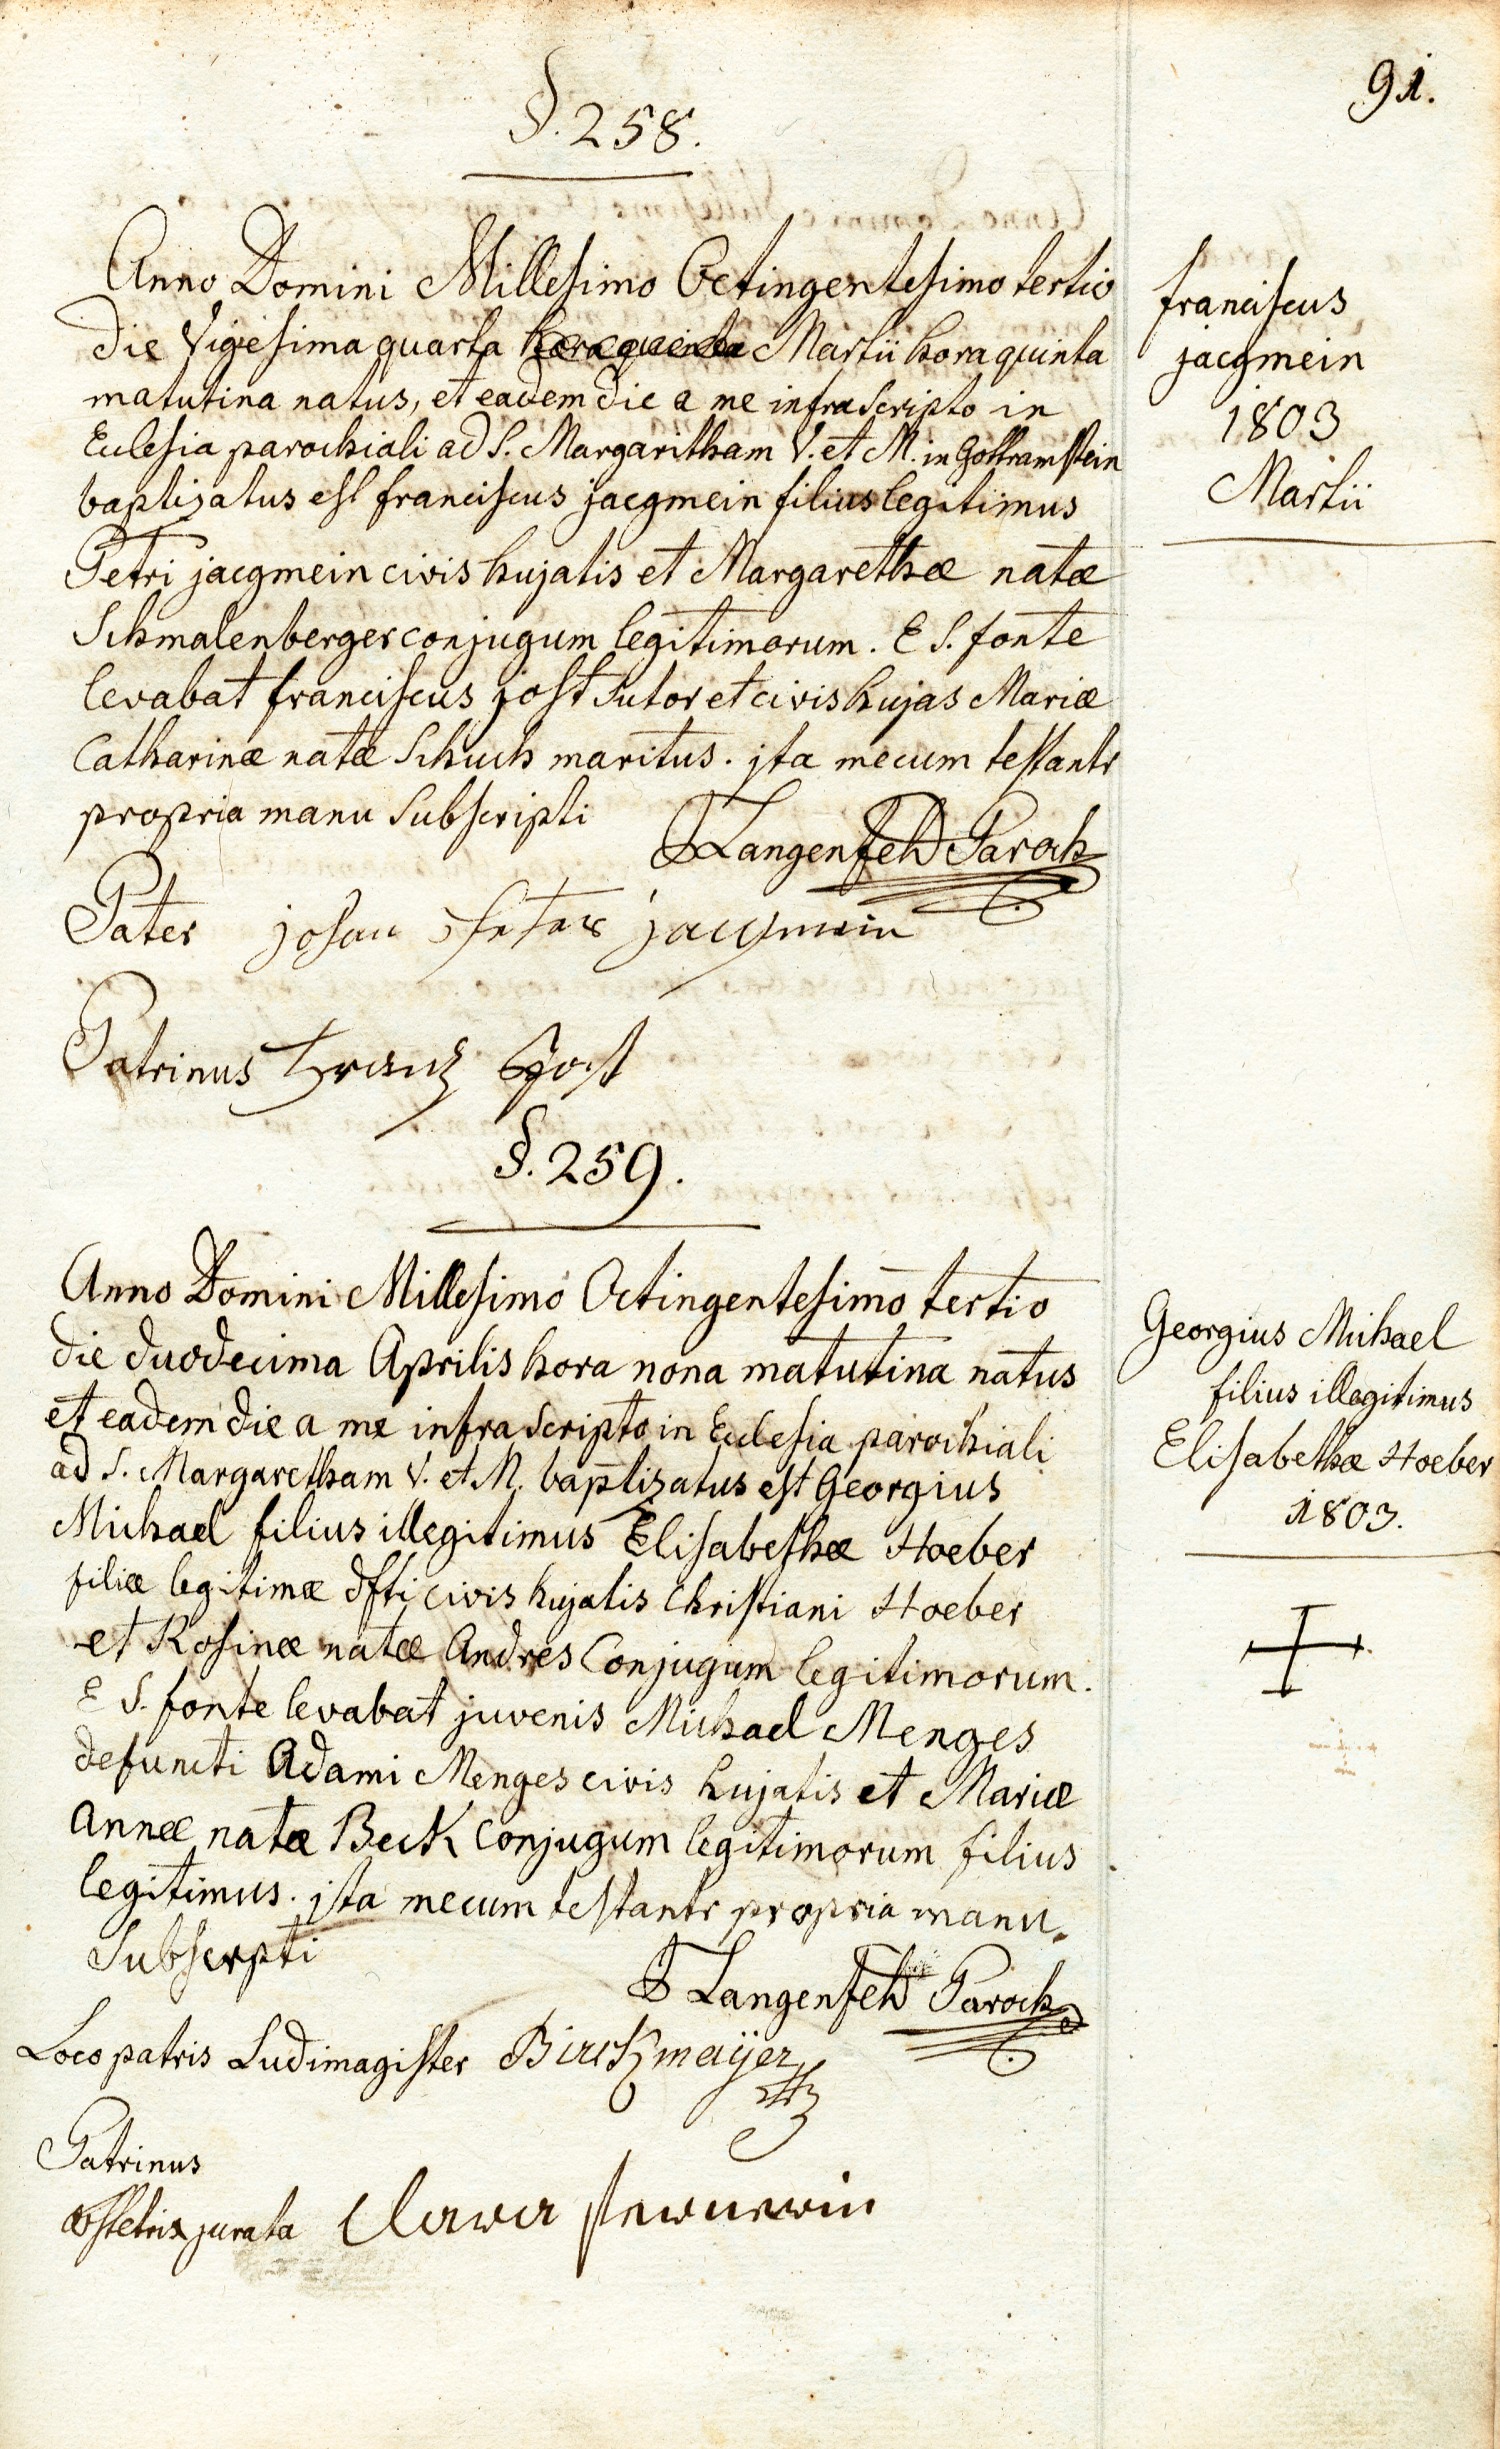 91.
§. 258.
Anno Domini Millesimo Octingentesimo tertio
die vigesima quarta hora quinta Martii hora quinta
matutina natus, et eadem die a me infra scripto in
Eclesia parochiali ad S. Margaritham V. et M. in Gottramstein
baptizatus est franciscus jacgmein filius legitimus
Petri jacgmein civis hujatis et Margarethæ natæ
Schmalenberger conjugum legitimorum. E S. fonte
levabat franciscus jost sutor et civis hujas Mariæ
Catharinæ natæ Schuch maritus. jta mecum testantr
propria manu subscripti
Langenfeld Paroch
Pater johan petter jacgmein
Patrinus Frantz Jost
franciscus
jacgmein
1803
Martii
§. 259.
Anno Domini Millesimo Octingentesimo tertio
die duodecima Aprilis hora nona matutina natus
et eadem die a me infra scripto in Eclesia parochiali
ad S. Margaretham V. et M. baptizatus est Georgius
Michael filius illegitimus Elisabethæ Hoeber
filiæ legitimæ dfti civis hujatis Christiani Hoeber
et Rosinæ natæ Andres Conjugum legitimorum.
E S. fonte levabat juvenis Michael Menges
defuncti Adami Menges civis hujatis et Mariæ
Annæ natæ Beck conjugum legitimorum filius
legitimus. jta mecum testantr propria manu
Subscrpti
Langenfeld Paroch
Loco patris Ludimagister Birckmaÿer
Patrinus
obstetrix jurata Clara
Georgius Michael
filius illegitimus
Elisabethæ Hoeber
1803.